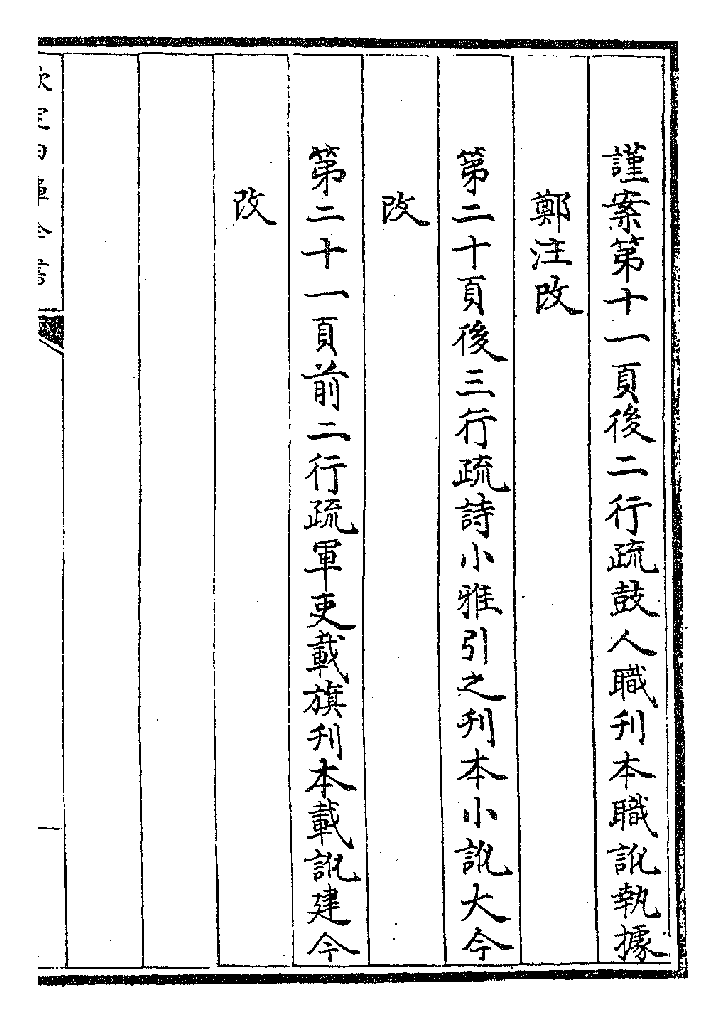 謹案第十一頁後二行疏鼓人職刋本職訛執據
鄭注改
第二十頁後三行疏詩小雅引之刋本小訛大今
改
第二十一頁前二行疏軍吏載旗刋本載訛建今
改
欽定四庫全書